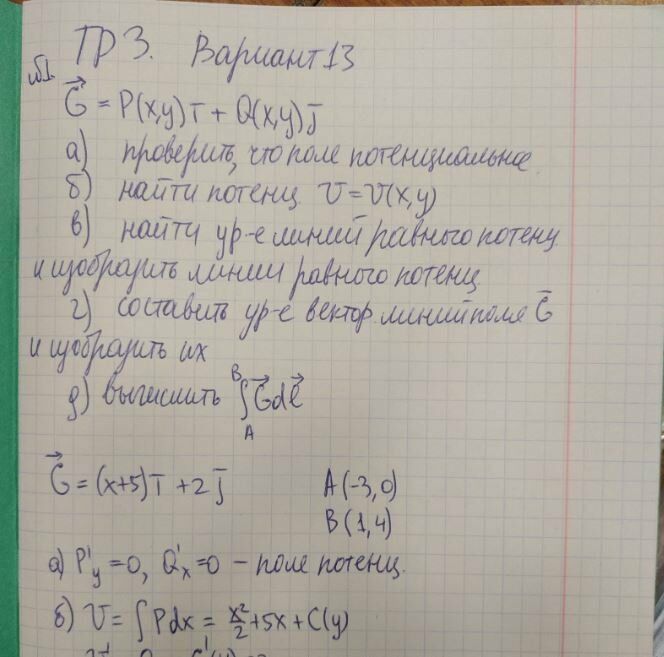 ТР 3. Вариант 13
№1.
G⃗ = P(x,y)i + Q(x,y)j
а) проверить, что поле потенциальное
б) найти потенц. U=U(x,y)
в) найти ур-е линий равного потенц
и изобразить линии равного потенц
г) составить ур-е вектор. линий поля G
и изобразить их
д) вычислить ∫ G⃗dℓ⃗
B
A
G⃗ = (x+5)i + 2j A(-3,0)
B(1,4)
а) P'y=0, Q'x=0 – поле потенц.
б) U= ∫Pdx = x²/2 +5x + C(y)